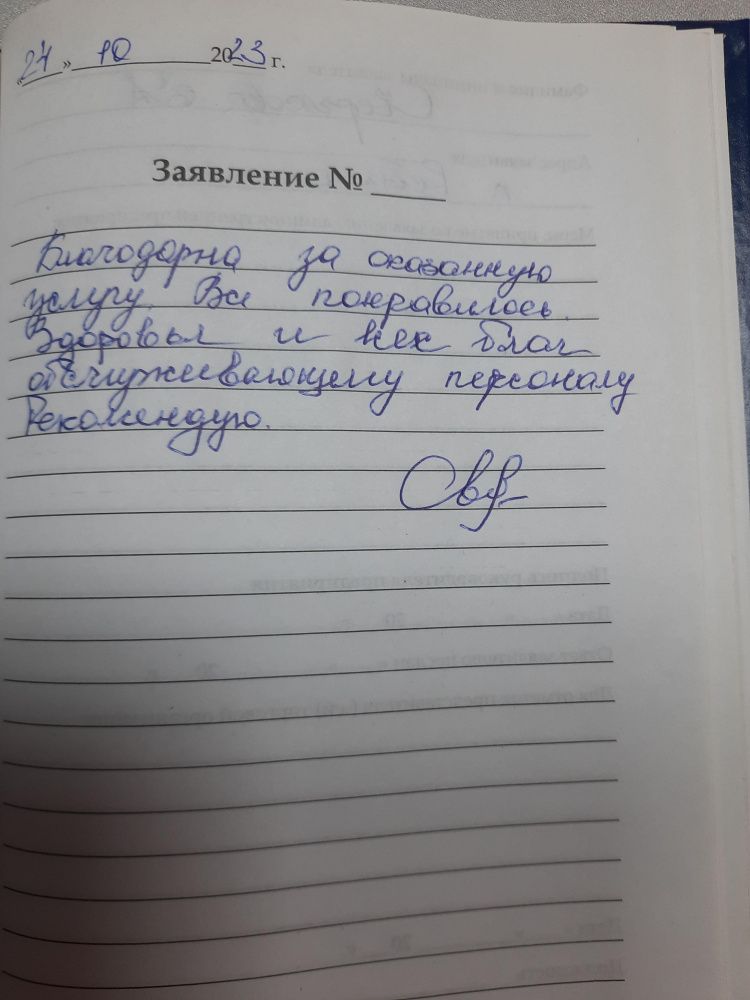 «24» 10 2023 г.
Заявление № _____
Благодарна за оказанную
услугу. Все понравилось.
Здоровья и всех благ
обслуживающему персоналу
Рекомендую.